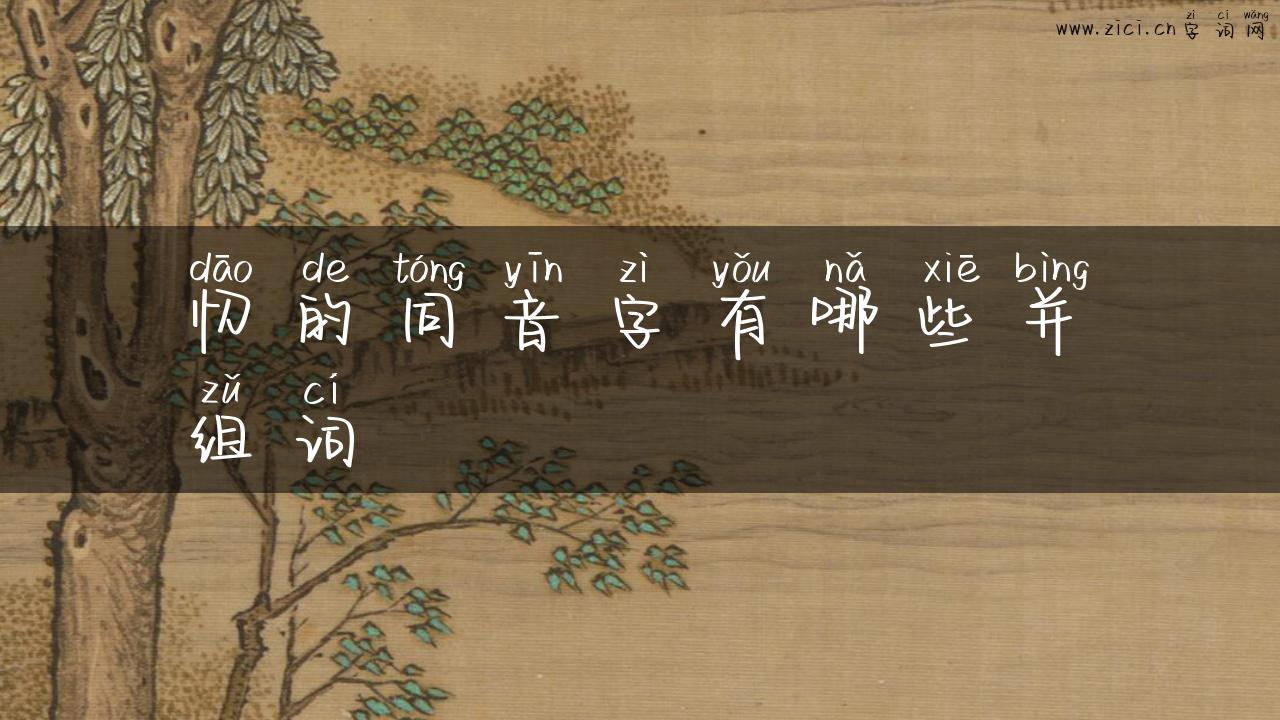 zì cí wǎng
www.zici.cn 字词网
dāo de tóng yīn zì yǒu nǎ xiē bìng
忉的同音字有哪些并
zǔ cí
组词